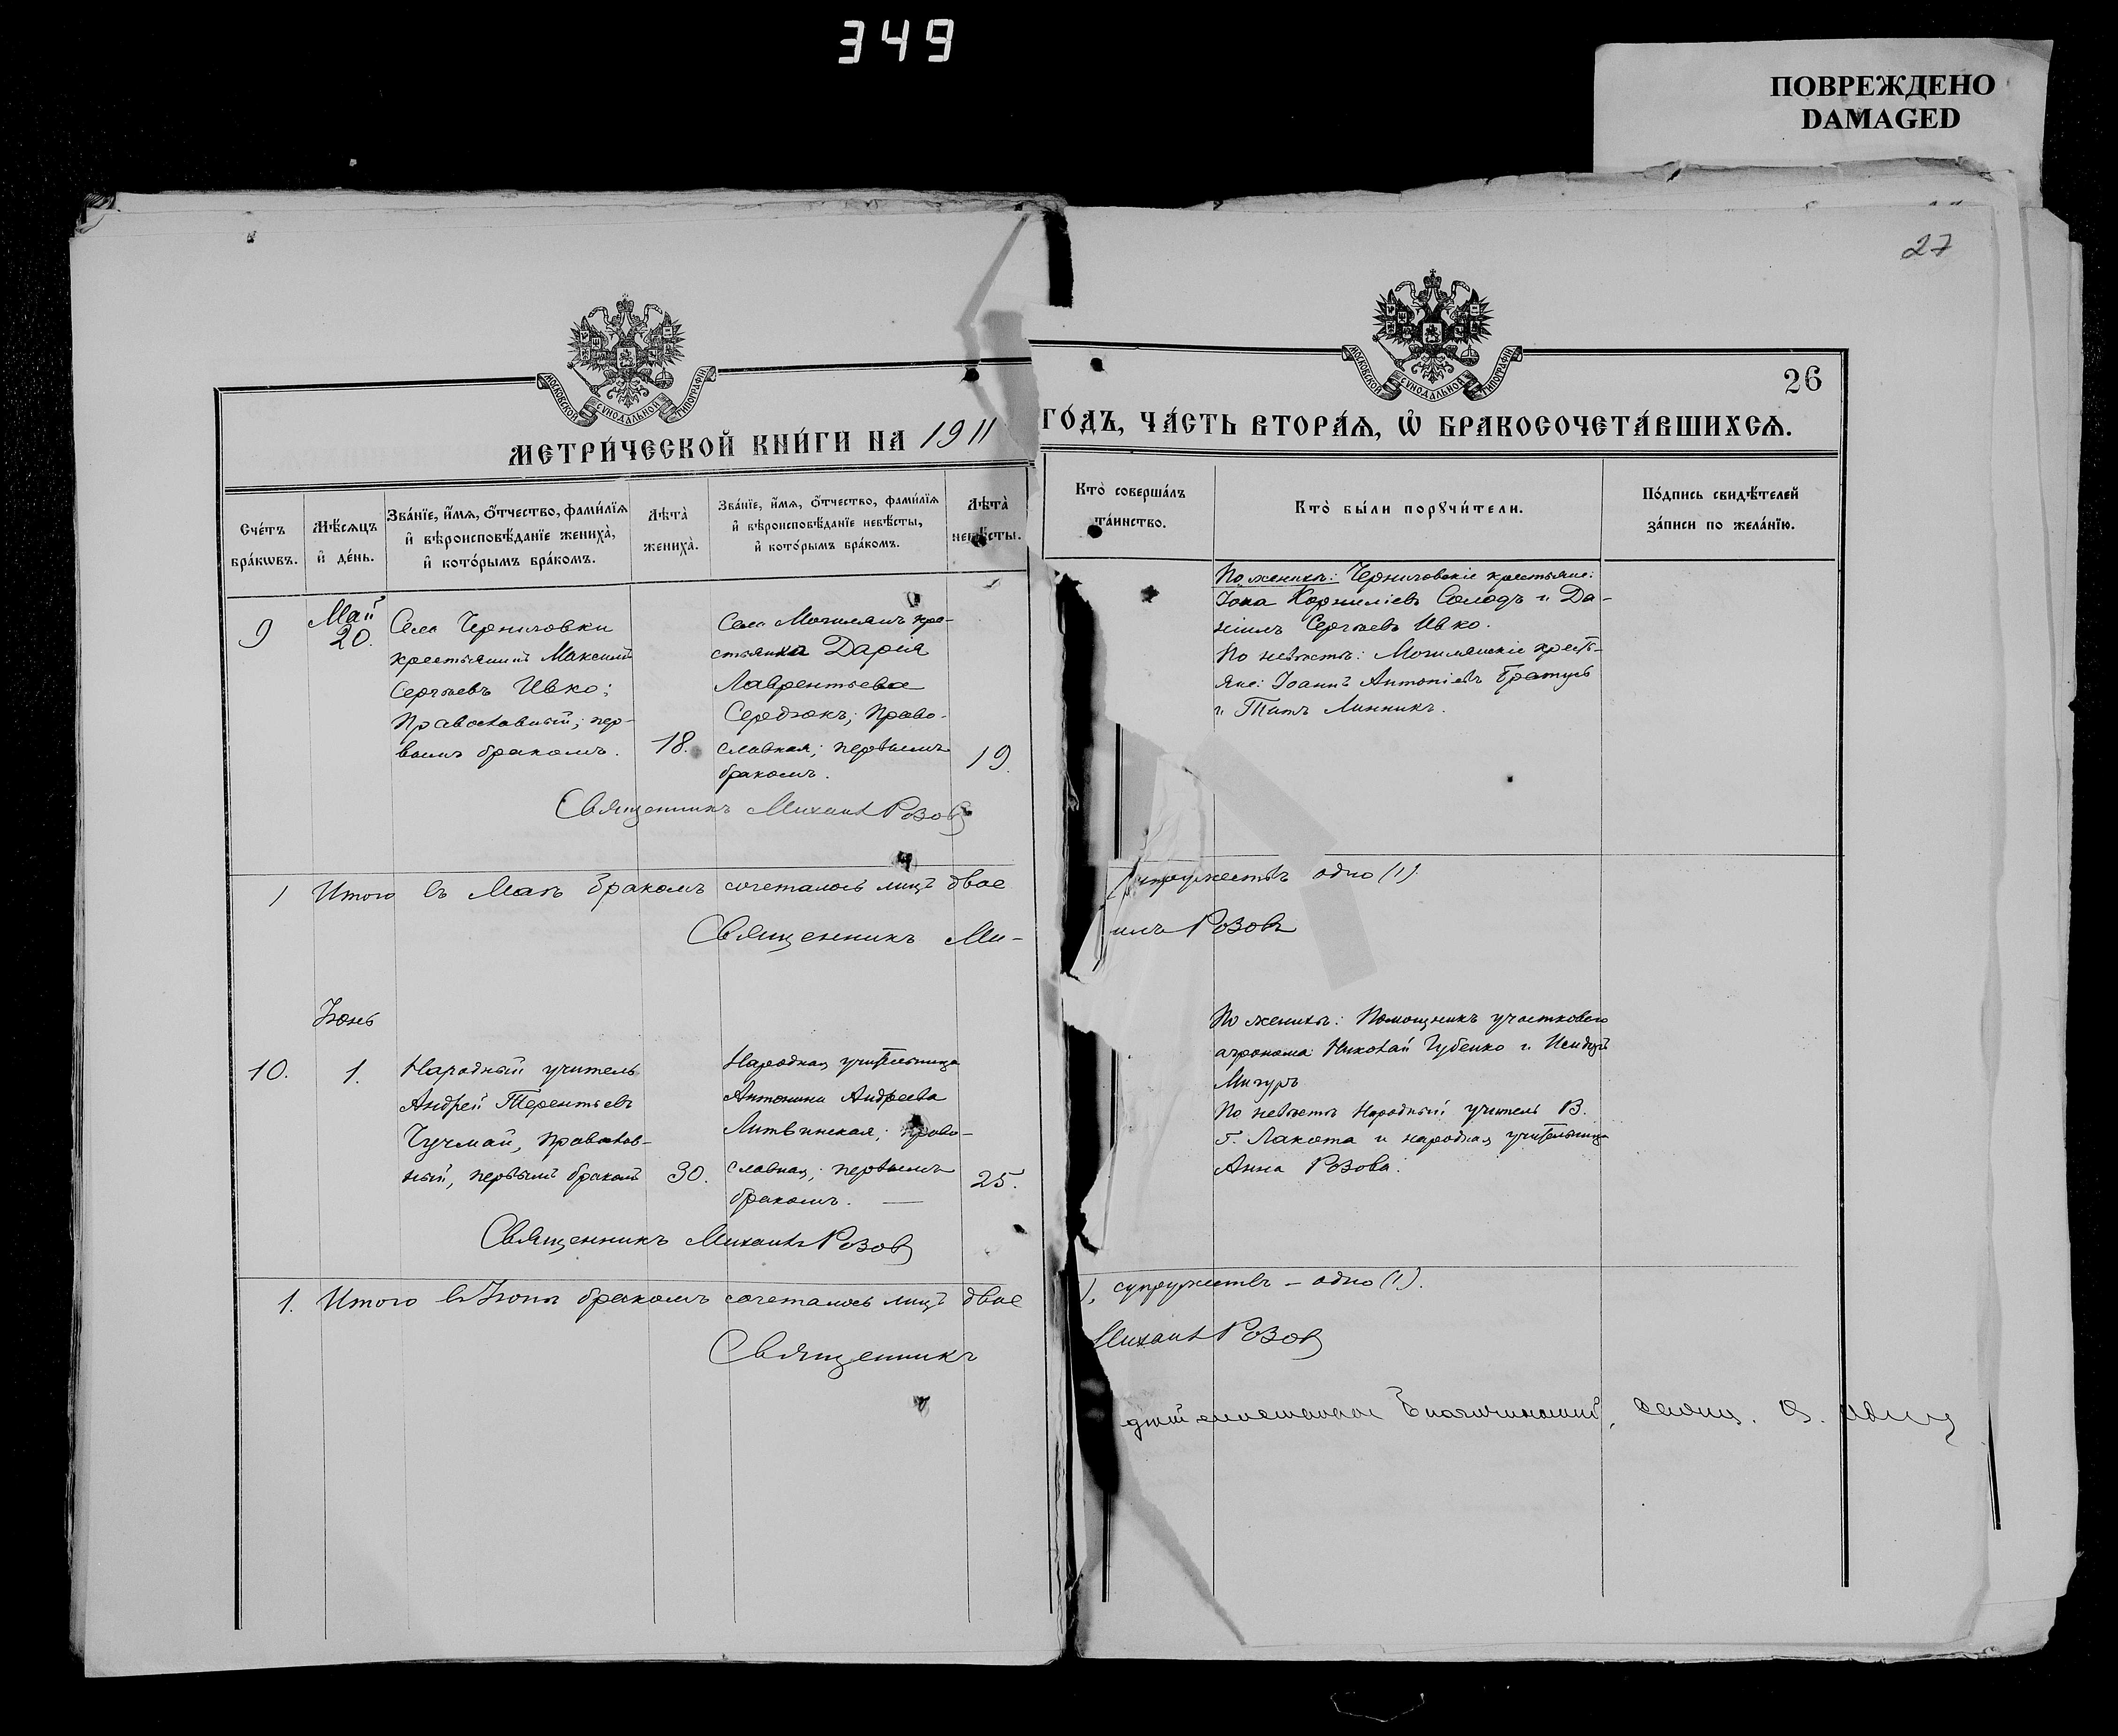 349
ПОВРЕЖДЕНО
DAMAGED
27
26
МОСКОВСКОЙ СУНОДАЛЬНОЙ ТИПОГРАФІИ
МОСКОВСКОЙ СУНОДАЛЬНОЙ ТИПОГРАФІИ
МЕТРИ́ЧЕСКОЙ КНИ́ГИ НА 1911 ГО́ДЪ, ЧА́СТЬ ВТОРА́Ѧ, Ѡ҆ БРАКОСОЧЕТА́ВШИХСѦ.
Сче́тъ бра́кѡвъ.
Мѣ́сѧцъ и҆ де́нь.
Зва́нїе, и҆́мѧ, ѻ҆́тчество, фами́лїѧ и҆ вѣроисповѣ́данїе жениха̀, и҆ кото́рымъ бра́комъ.
Лѣта̀ жениха̀.
Зва́нїе, и҆́мѧ, ѻ҆́тчество, фами́лїѧ и҆ вѣроисповѣ́данїе невѣ́сты, и҆ кото́рымъ бра́комъ.
Лѣта̀ невѣ́сты.
Кто̀ соверша́лъ та́инство.
Кто̀ бы́ли порꙋчи́тели.
По́дпись свидѣ́телей за́писи по жела́нїю.
9
Май
20.
Села Черниговки
крестьянинъ Максимъ
Сергѣевъ Ивко;
Православный; пер-
вымъ бракомъ.
18.
Села Могилянъ кре-
стьянка Дарія
Лаврентьева
Середюкъ; Право-
славная; первымъ
бракомъ.
19.
По женихѣ: Черниговскіе крестьяне:
Іона Корниліевъ Солодъ и Да-
ніилъ Сергѣевъ Ивко.
По невѣстѣ: Могилянскіе крестъ-
яне: Іоаннъ Антоніевъ Братусь
и Титъ Линникъ.
Священникъ Михаилъ Розовъ
1 Итого въ Маѣ бракомъ сочеталось лицъ двое супружествъ одно (1)
Священникъ Ми-
илъ Розовъ
Іюнь
10.
1.
Народный учитель
Андрей Терентьевъ
Чучмай, православ-
ный, первымъ бракомъ
30.
Народная учительница
Антонина Андреева
Литвинская; право-
славная; первымъ
бракомъ.
25.
По женихѣ: Помощникъ участковаго
агронома Николай Губенко и Исидоръ
Мигуръ
По невѣстѣ Народный учитель В.
Г. Лакота и народная учительница
Анна Розова.
Священникъ Михаилъ Розовъ
1. Итого въ Іюнѣ бракомъ сочеталось лицъ двое ), супружествъ – одно (1).
Священникъ Михаилъ Розовъ